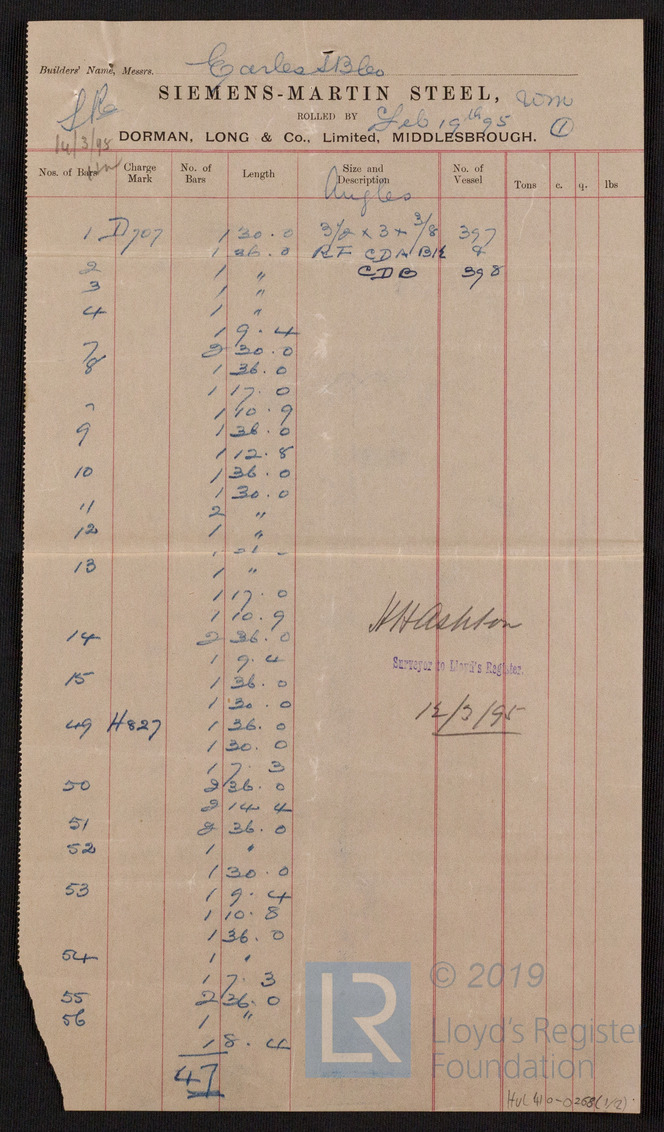 Builders' Name, Messrs. Earles SB Co
SIEMENS-MARTIN STEEL,
ROLLED BY Feb 19th 95
DORMAN, LONG & Co., Limited, MIDDLESBROUGH. 1
14/3/95
Nos. of Bars Charge Mark No. of Bars Length Size and Description No. of Vessel Tons c. q. lbs
Angles
1 D707 1 30.0 3 1/2 x 3 x 3/8 397
1 36.0 RF CDA B &
2 1 " CDB 398
3 1 "
4 1 "
1 9.4
7 2 30.0
8 1 36.0
1 17.0
1 10.9
9 1 36.0
1 12.8
10 1 36.0
1 30.0
11 2 "
12 1 "
13 1 "
1 17.0
1 10.9
14 2 36.0
1 9.4
15 1 36.0
1 30.0
49 H827 1 36.0
1 30.0
1 7.3
50 2 36.0
2 14.4
51 2 36.0
52 1 "
1 30.0
53 1 9.4
1 10.8
1 36.0
54 1 "
1 7.3
55 2 36.0
56 1 "
1 8.4
47
H H Ashton
Surveyor to Lloyd's Register.
12/3/95
LR
© 2019
Lloyd's Register
Foundation
HUL410-0268(1/2)